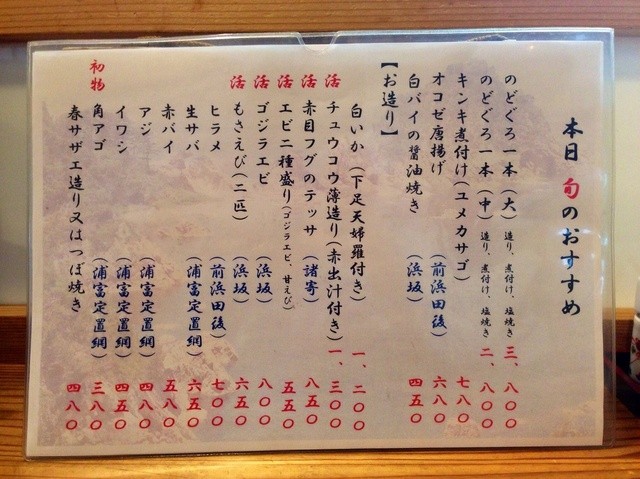 本日 旬のおすすめ
のどぐろ一本（大）造り、煮付け、塩焼き 三、八〇〇
のどぐろ一本（中）造り、煮付け、塩焼き 二、八〇〇
キンキ煮付け（ユメカサゴ） 七八〇
オコゼ唐揚げ （前浜田後） 六八〇
白バイの醤油焼き （浜坂） 四五〇
【お造り】
白いか（下足天婦羅付き） 一、二〇〇
活 チュウコウ薄造り（赤出汁付き） 一、三〇〇
活 赤目フグのテッサ （諸寄） 八五〇
活 エビ二種盛り（ゴジラエビ、甘えび） 五五〇
活 ゴジラエビ （浜坂） 八〇〇
活 もさえび（二匹） （浜坂） 六五〇
ヒラメ （前浜田後） 七〇〇
生サバ （浦富定置網） 六五〇
赤バイ 五八〇
アジ （浦富定置網） 四八〇
イワシ （浦富定置網） 四五〇
初物 角アゴ （浦富定置網） 三八〇
春サザエ造り又はつぼ焼き 四八〇